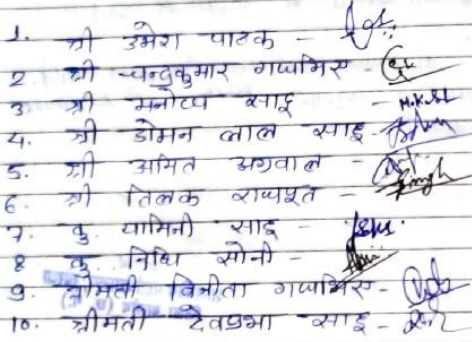 1. श्री उमेश पाठक -
2 श्री चन्द्रकुमार गजभिए -
3 श्री मनोज साहू - M.K.S
4. श्री डोमन लाल साहू -
5. श्री अमित अग्रवाल -
6. श्री तिलक राजपूत - Singh
7. कु. यामिनी साहू -
8 कु. निधि सोनी -
9. श्रीमती विनीता गजभिए -
10. श्रीमती देवप्रभा साहू -